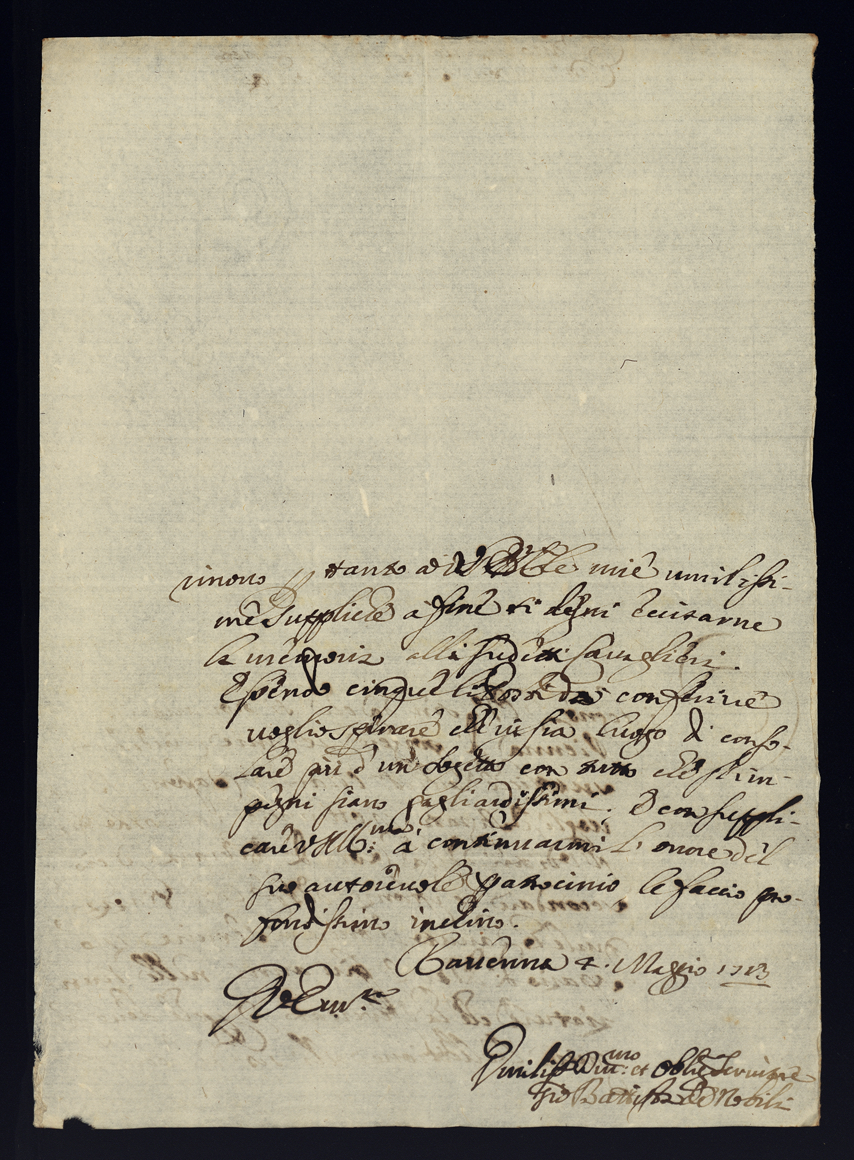 tanto a V. le mie umilissi-
me suppliche a fine si degni
la memoria alli sudetti Cavaglieri.
Essendo cinque li da conferire
voglio sperare che vi sia luogo di conso-
lare più d'un Oggetto con tutto che gl'im-
pegni siano gagliardissimi; E con suppli-
care VS Ill:ma à continuarmi l'onore del
suo autorevole patrocinio le faccio pro-
fondissimo inchino.
Ravenna 4. Maggio 1713
Umiliss Div:mo et Obl
Gio Battista de Nobili